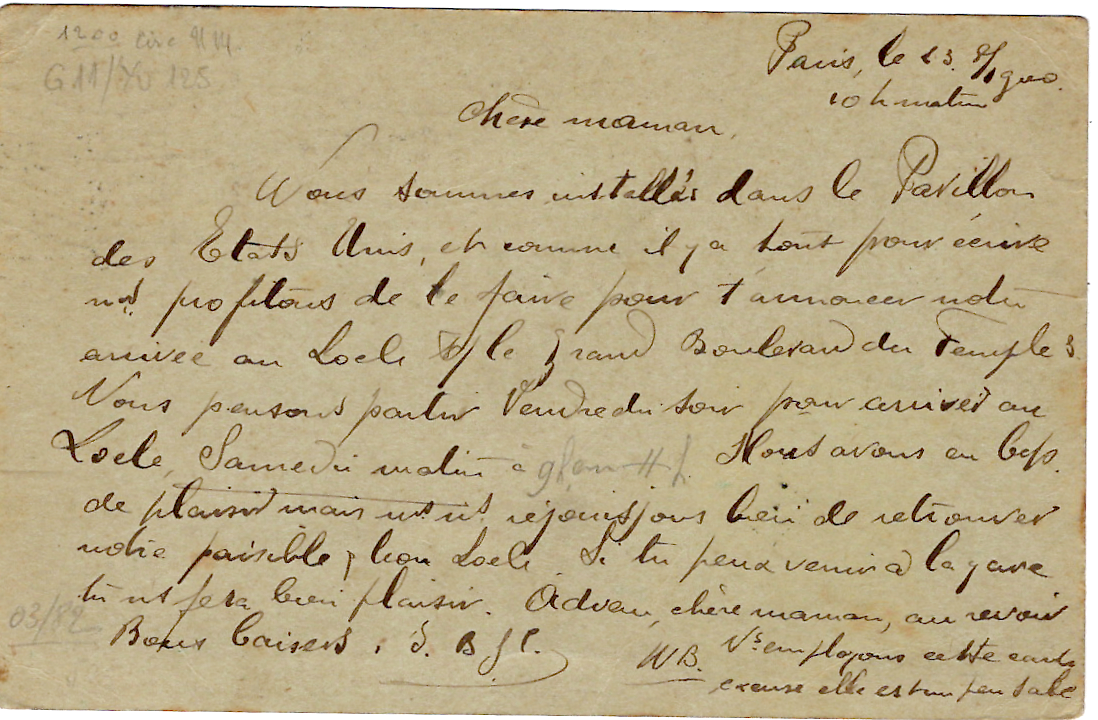 1200
G 11/XV 125
Paris, le 23. 8/1900.
10 h matin
Chère maman,
Nous sommes installés dans le Pavillon
des Etats Unis, et comme il y a tout pour écrire
ns profitons de le faire pour t'annoncer notre
arrivée au Locle le grand Boulevard du Temple 3.
Nous pensons partir Vendredi soir pour arriver au
Locle, Samedi matin à Nous avons eu bcp.
de plaisir mais ns ns réjouissons bien de retrouver
notre paisible, bon Locle. Si tu peux venir à la gare
tu ns fera bien plaisir. Adieu, chère maman, au revoir
03/82
Bons baisers. S. B
NB. Ns employons cette carte
excuse elle est un peu sale